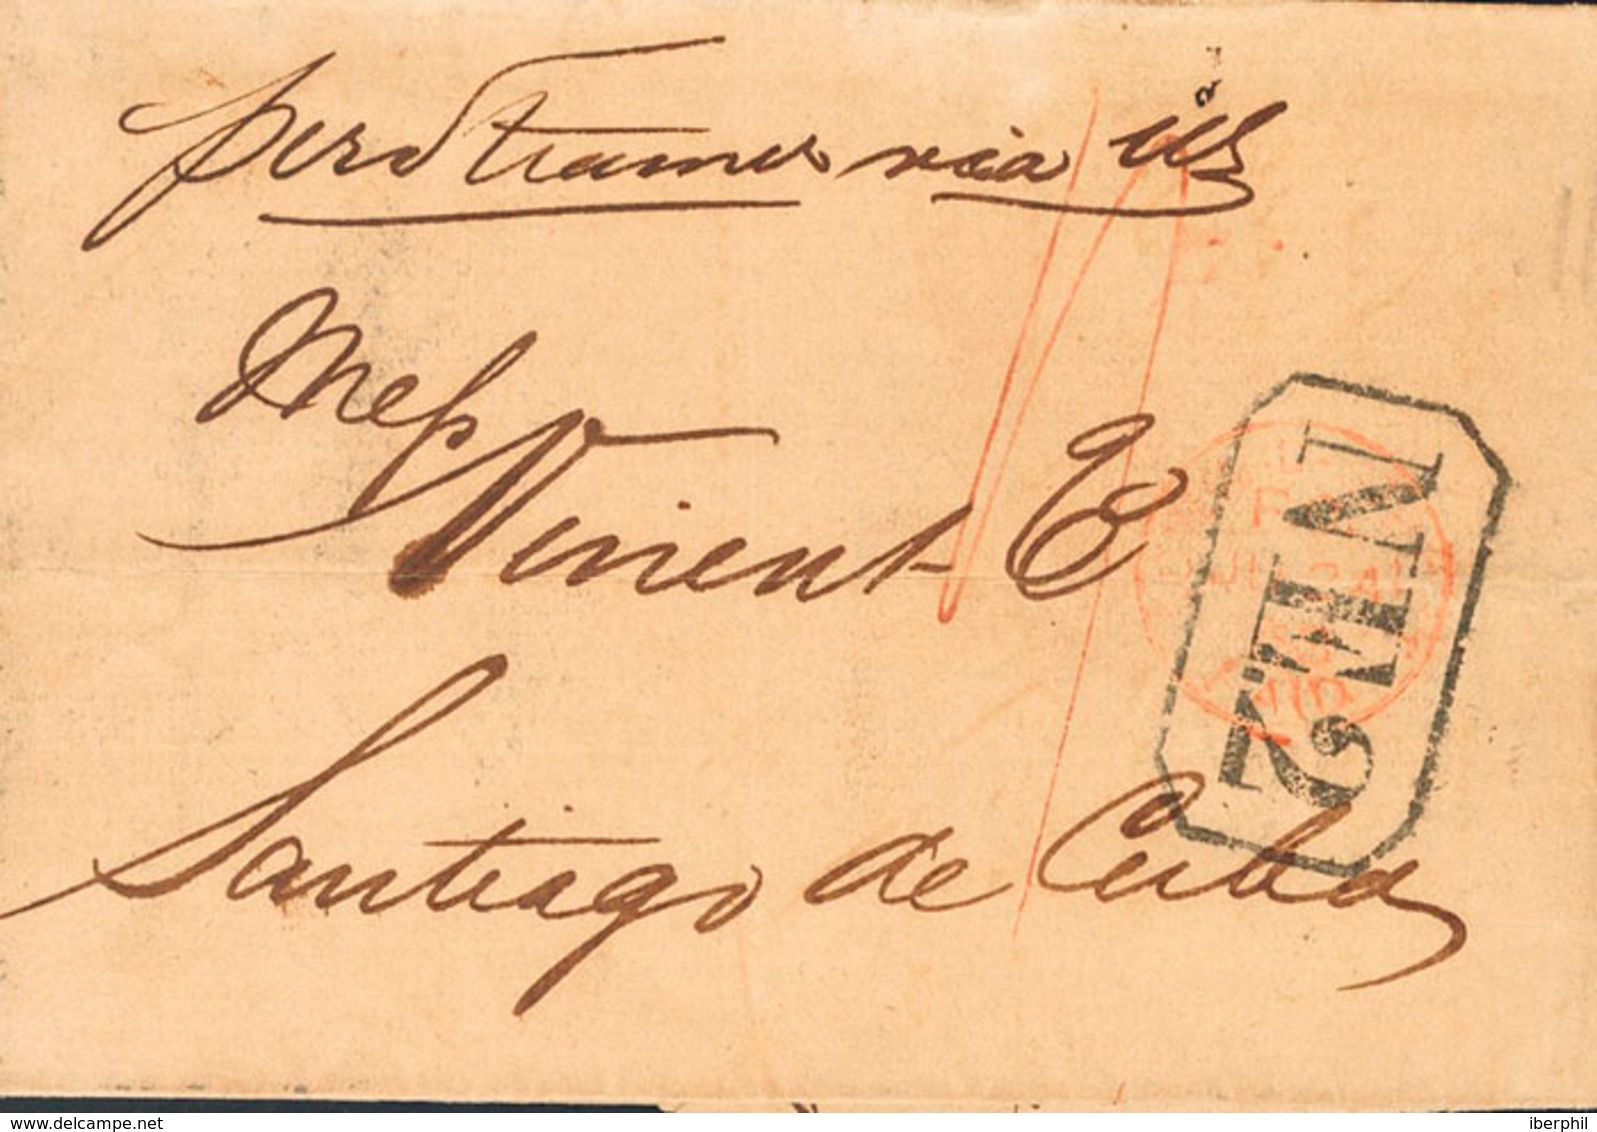 per Steamer via
Mess
Vinent &
Santiago de Cuba
NE2
P
JU 24
delcampe.net
iberphil